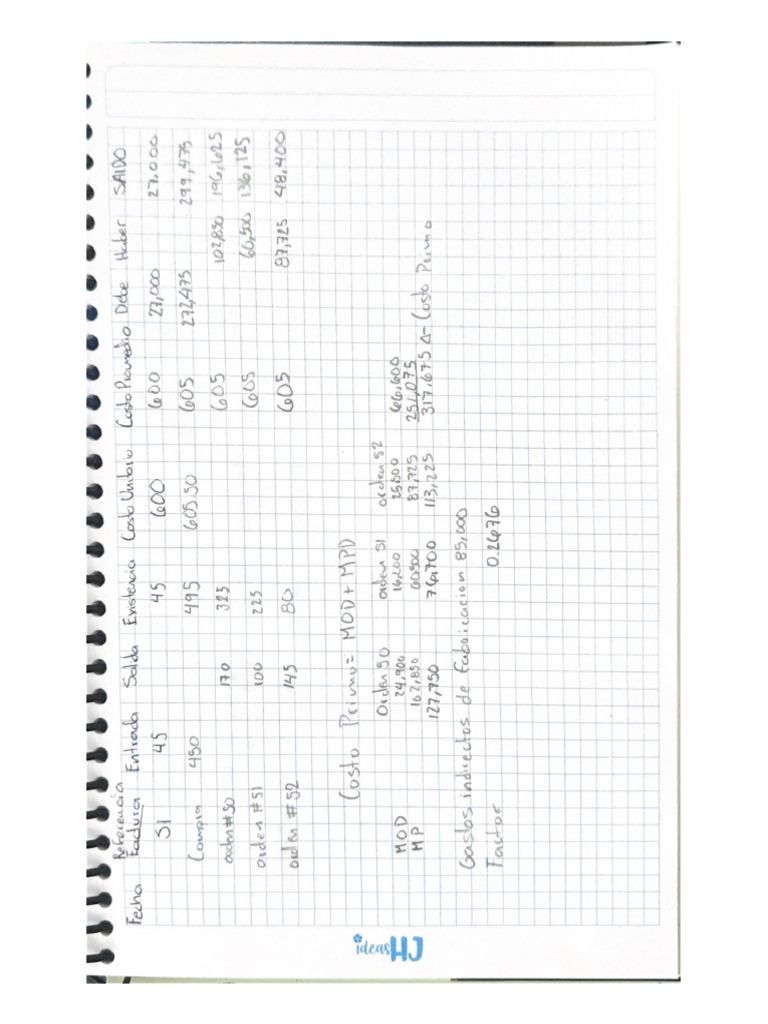 Referencia
Fecha Factura Entrada Salida Existencia Costo Unitario Costo Promedio Debe Haber SALDO
SI 45 45 600 600 27,000 27.000
Compra 450 495 605.50 605 272,475 299,475
orden #50 170 325 605 102,850 196,625
orden #51 100 225 605 60,500 136,125
orden #52 145 80 605 87,725 48,400
Costo Primo = MOD + MPD
Orden 50 orden 51 orden 52
MOD 24,900 16,200 25,500 66,600
MP 102,850 60,500 87,725 251,075
127,750 76,700 113,225 317,675 Δ- Costo Primo
Gastos indirectos de Fabricacion 85,000
Factor 0.2676
ideas HJ